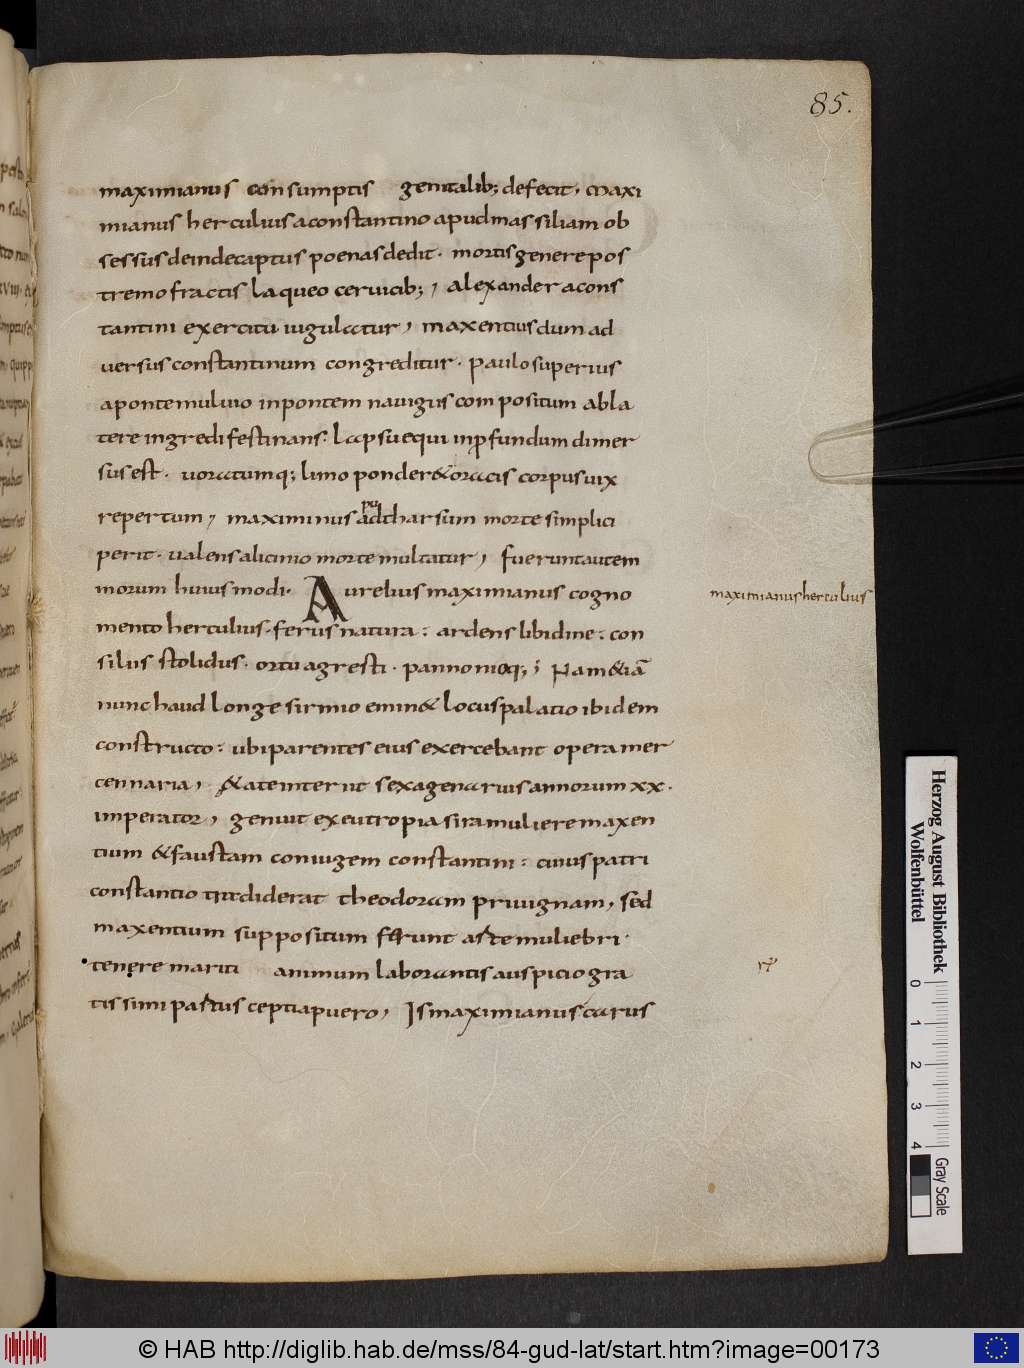 85.
maximianus consumptis genitalib; defecit, maxi
mianus herculius aconstantino apudmassiliam ob
sessus deindecaptus poenasdedit. mortisgenerepos
tremofractis laqueo ceruicib;, alexander acons
tantini exercitu iugulatur, maxentius dum ad
uersus constantinum congreditur. paulosuperius
apontemuluio inpontem nauigiis compositum abla
tere ingredi festinans. lapsuequi inpfundum dimer
sus est. uoratumq; limo ponder&oracis corpus uix
repertum, maximinus adtharsum morte simplici
pu
periit. ualens alicinio morte multatur, fuerunt autem
morum huiusmodi. Aurelius maximianus cogno
mento herculius. ferus natura: ardens libidine: con
maximianus herculius
siliis stolidus. ortu agresti. pannonioq;, Nam&iā
nunc haud longe sirmio emin& locus palatio ibidem
constructo: ubi parentes eius exercebant opera mer
cennaria, &ate interiit sexagenarius annorum xx.
imperator, genuit exeutropia sira muliere maxen
tium &faustam coniugem constantini: cuius patri
constantio tradiderat theodoram priuignam, sed
maxentium suppositum ferunt arte muliebri.
tenere mariti animum laborantis auspicio gra
tissimi partus ceptiapuero, Is maximianus carus
Herzog August Bibliothek
Wolfenbüttel
0 1 2 3 4
Gray Scale
© HAB http://diglib.hab.de/mss/84-gud-lat/start.htm?image=00173